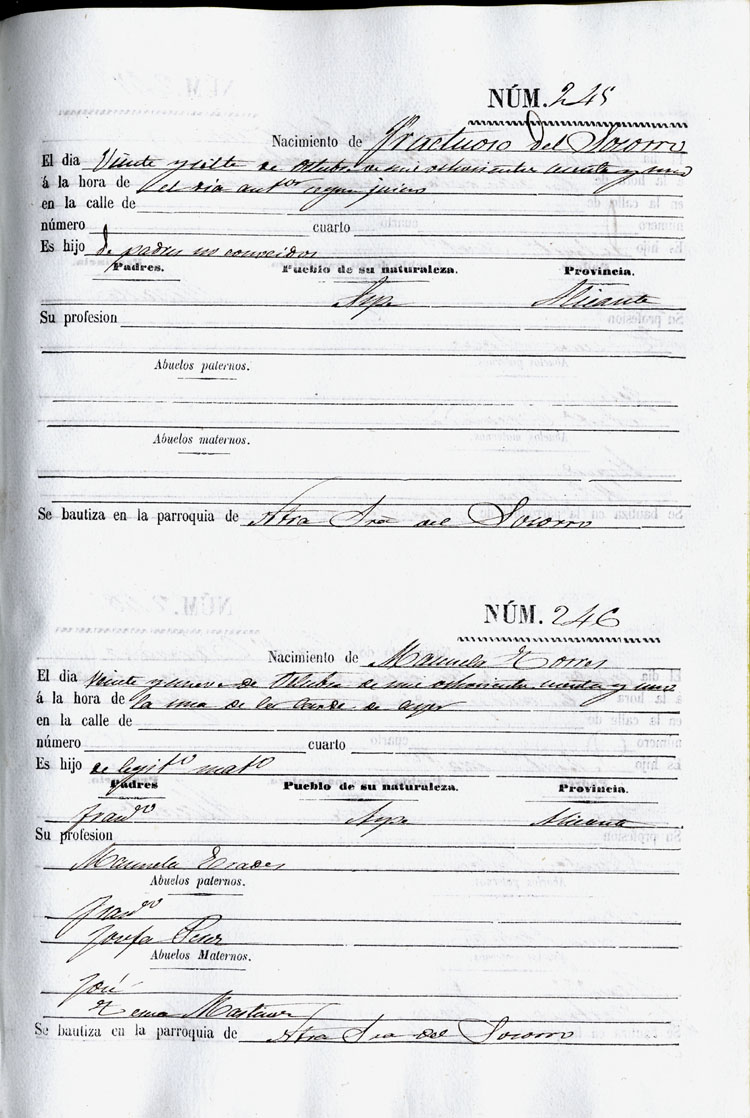 NÚM. 245
Nacimiento de Fructuoso del Socorro
El dia Veinte y siete de Octubre de mil ochocientos cuenta y uno
á la hora de el dia antor segun juicio
en la calle de
número cuarto
Es hijo de padres no conocidos
Padres. Pueblo de su naturaleza. Provincia.
Aspe Alicante
Su profesion
Abuelos paternos.
Abuelos maternos.
Se bautiza en la parroquia de Ntra Sra del Socorro
NÚM. 246
Nacimiento de Manuela Torres
El dia Veinte y nueve de Octubre de mil ochocientos cuenta y uno
á la hora de la una de la tarde de ayer
en la calle de
número cuarto
Es hijo de legito mato
Padres Pueblo de su naturaleza. Provincia.
Franco Aspe Alicante
Su profesion
Manuela Erades
Abuelos paternos.
Franco
Josefa
Abuelos Maternos.
José
Martinez
Se bautiza en la parroquia de Ntra Sra del Socorro